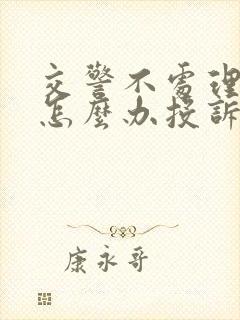 交警不處理
怎麼办投訴
康永哥